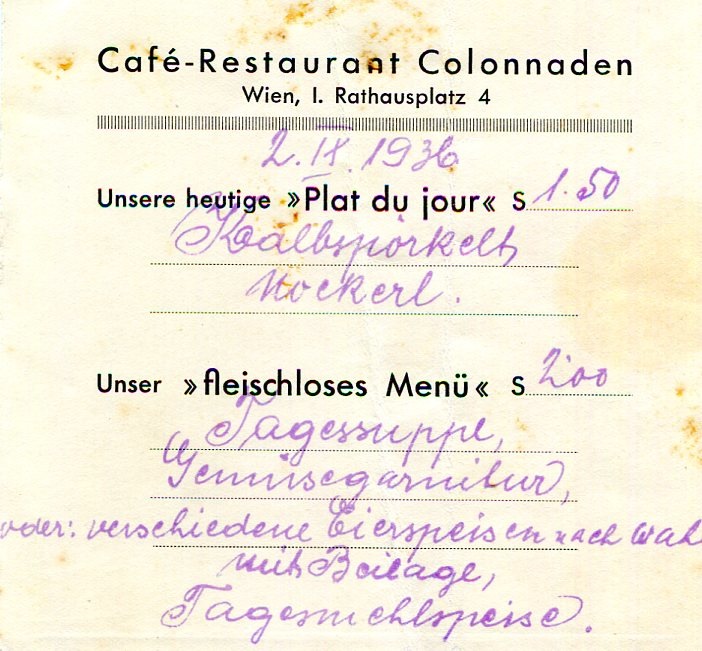 Café-Restaurant Colonnaden
Wien, I. Rathausplatz 4
2. IX. 1936
Unsere heutige »Plat du jour« S 1.50
Kalbspörkelt
Nockerl.
Unser »fleischloses Menü« S 2.00
Tagessuppe,
Gemüsegarnitur,
oder: verschiedene Eierspeisen nach Wahl
mit Beilage,
Tagesmehlspeise.